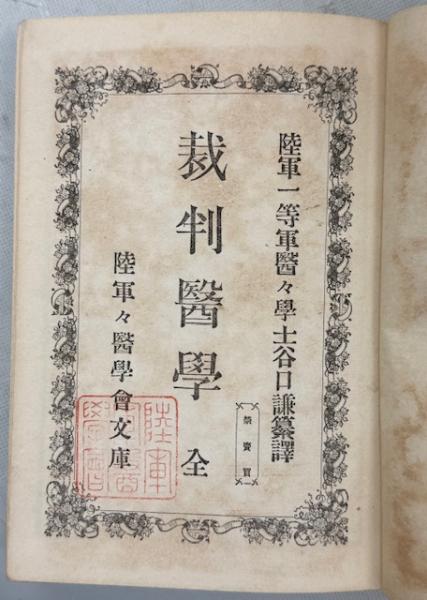 陸軍一等軍醫々學士谷口謙纂譯
禁賣買
裁判醫學 全
陸軍々醫學會文庫